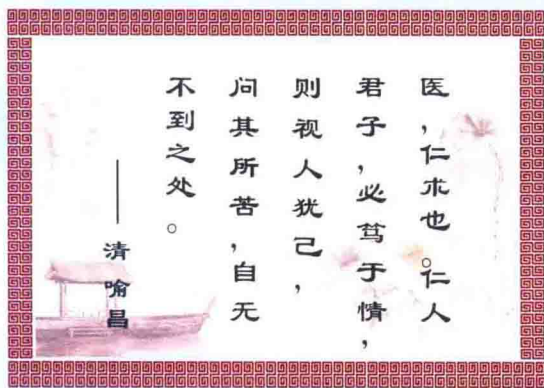 医，仁术也。仁人
君子，必笃于情，
则视人犹己，
问其所苦，自无
不到之处。
——清 喻昌